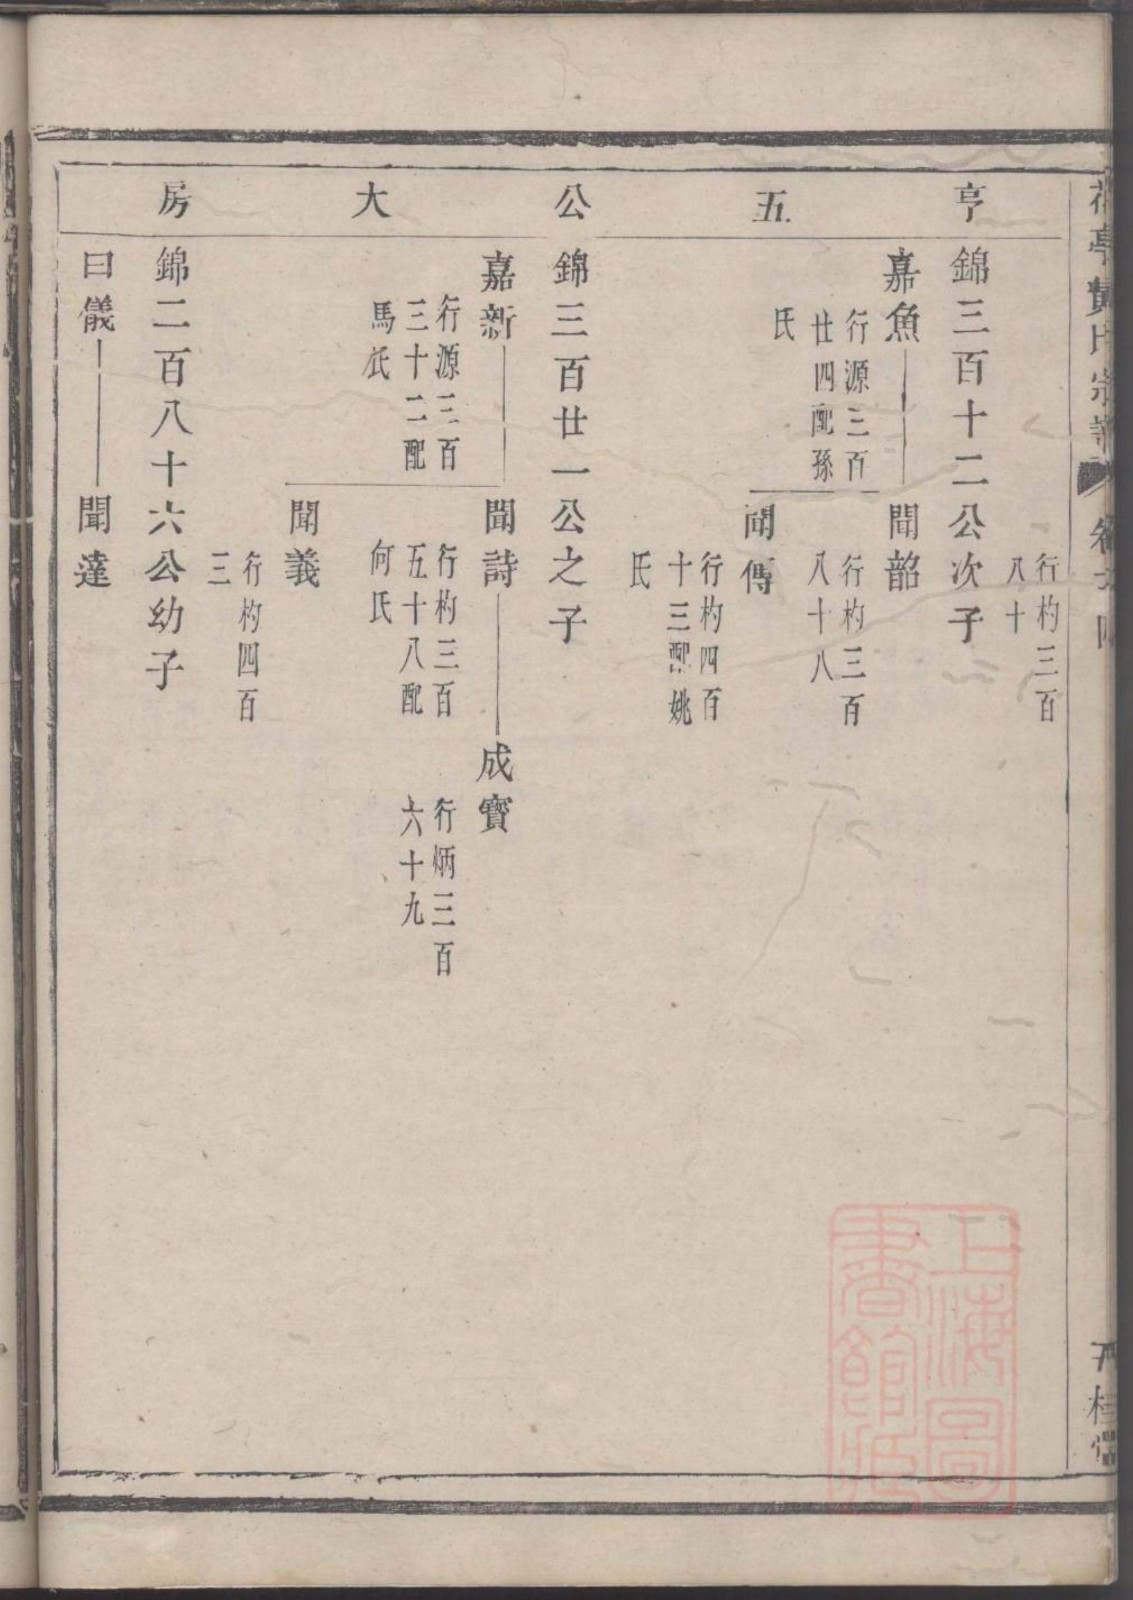 亨五公大房
行杓三百
八十
錦三百十二公次子
嘉魚
行源三百
廿四配孫
氏
聞韶
行杓三百
八十八
聞傳
行杓四百
十三配姚
氏
錦三百廿一公之子
嘉新
行源三百
三十二配
馬氏
聞詩
行杓三百
五十八配
何氏
成寶
行炳三百
六十九
聞義
行杓四百
三
錦二百八十六公幼子
曰儀
聞達
上海圖
書館藏